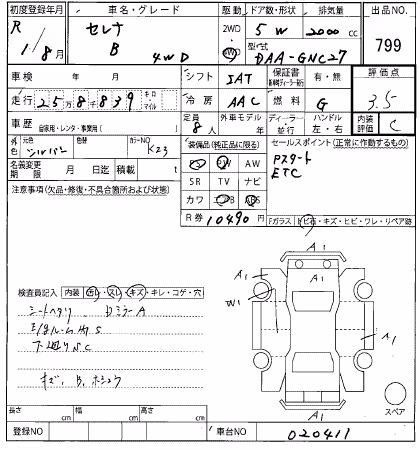 初度登録年月 車名・グレード 駆動 ドア数・形状 排気量 出品NO.
R 1/8月 セレナ B 4WD 2WD 4WD 5 W 2000 cc 799
型式 DAA-GNC27
車検 年 月 シフト IAT 保証書 有・無 評価点
走行 25万8千839 キロ マイル 冷房 AAC 燃料 G 3.5
車歴 自家用・レンタ・事業用( ) 定員 8人 外車モデル 年 ディーラー 並行 ハンドル 左・右 内装評価 C
外色 元色 シルバー 色替 カラーNO K23 装備品(純正品に限る) セールスポイント(正常に動作するもの)
名義変更期限 月 日迄 積載量 t PS PW AW Pスタート
SR TV ナビ ETC
注意事項(欠品・修復・不具合箇所および状態) カワ エアB ABS
R券 10490円
Fガラス トビ石・キズ・ヒビ・ワレ・リペア跡
A1
A1 A1
検査員記入 内装 汚レ・スレ・キズ・キレ・コゲ・穴 W1
シートヘタリ ミラーA
ルーム S A1
下廻りS,C
キズ、B、ホシュウ
A1 スペア
長さ cm 幅 cm 高さ cm
登録NO 車台NO 020411